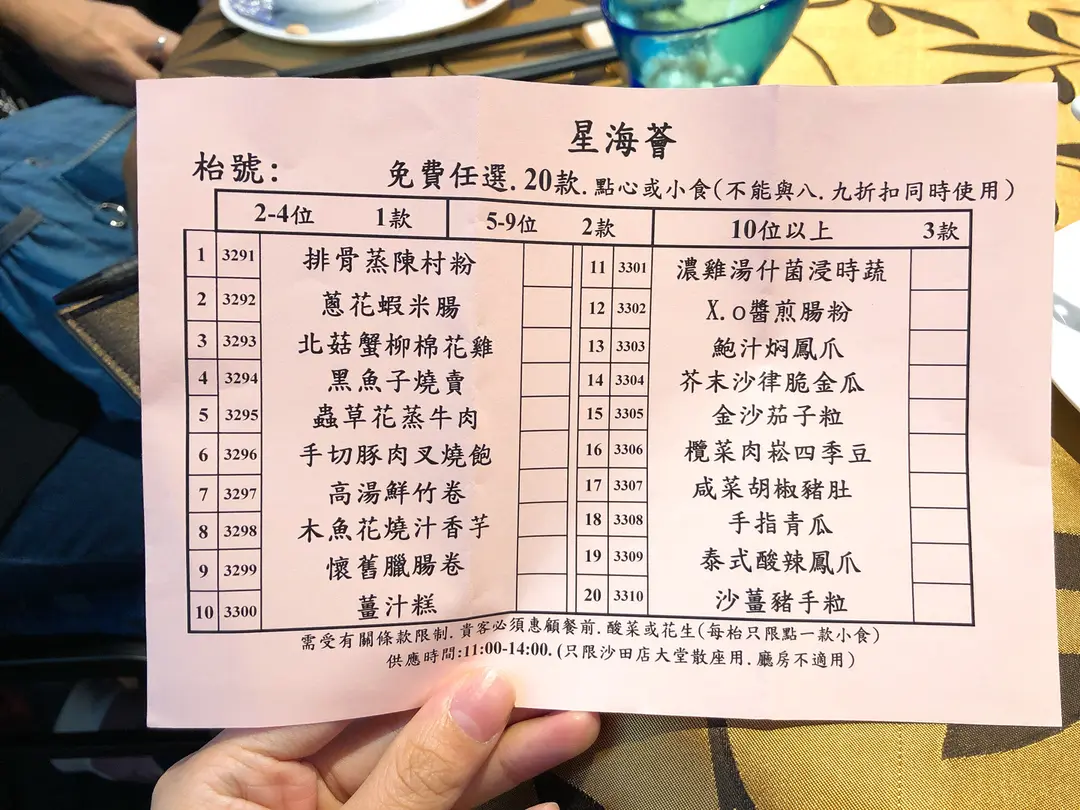 星海薈
枱號:
免費任選.20款.點心或小食(不能與八.九折扣同時使用)
2-4位 1款 5-9位 2款 10位以上 3款
1 3291 排骨蒸陳村粉 11 3301 濃雞湯什菌浸時蔬
2 3292 蔥花蝦米腸 12 3302 X.o醬煎腸粉
3 3293 北菇蟹柳棉花雞 13 3303 鮑汁焖鳳爪
4 3294 黑魚子燒賣 14 3304 芥末沙律脆金瓜
5 3295 蟲草花蒸牛肉 15 3305 金沙茄子粒
6 3296 手切豚肉叉燒飽 16 3306 欖菜肉崧四季豆
7 3297 高湯鮮竹卷 17 3307 咸菜胡椒豬肚
8 3298 木魚花燒汁香芋 18 3308 手指青瓜
9 3299 懷舊臘腸卷 19 3309 泰式酸辣鳳爪
10 3300 薑汁糕 20 3310 沙薑豬手粒
需受有關條款限制.貴客必須惠顧餐前.酸菜或花生(每枱只限點一款小食)
供應時間:11:00-14:00.(只限沙田店大堂散座用.廳房不適用)